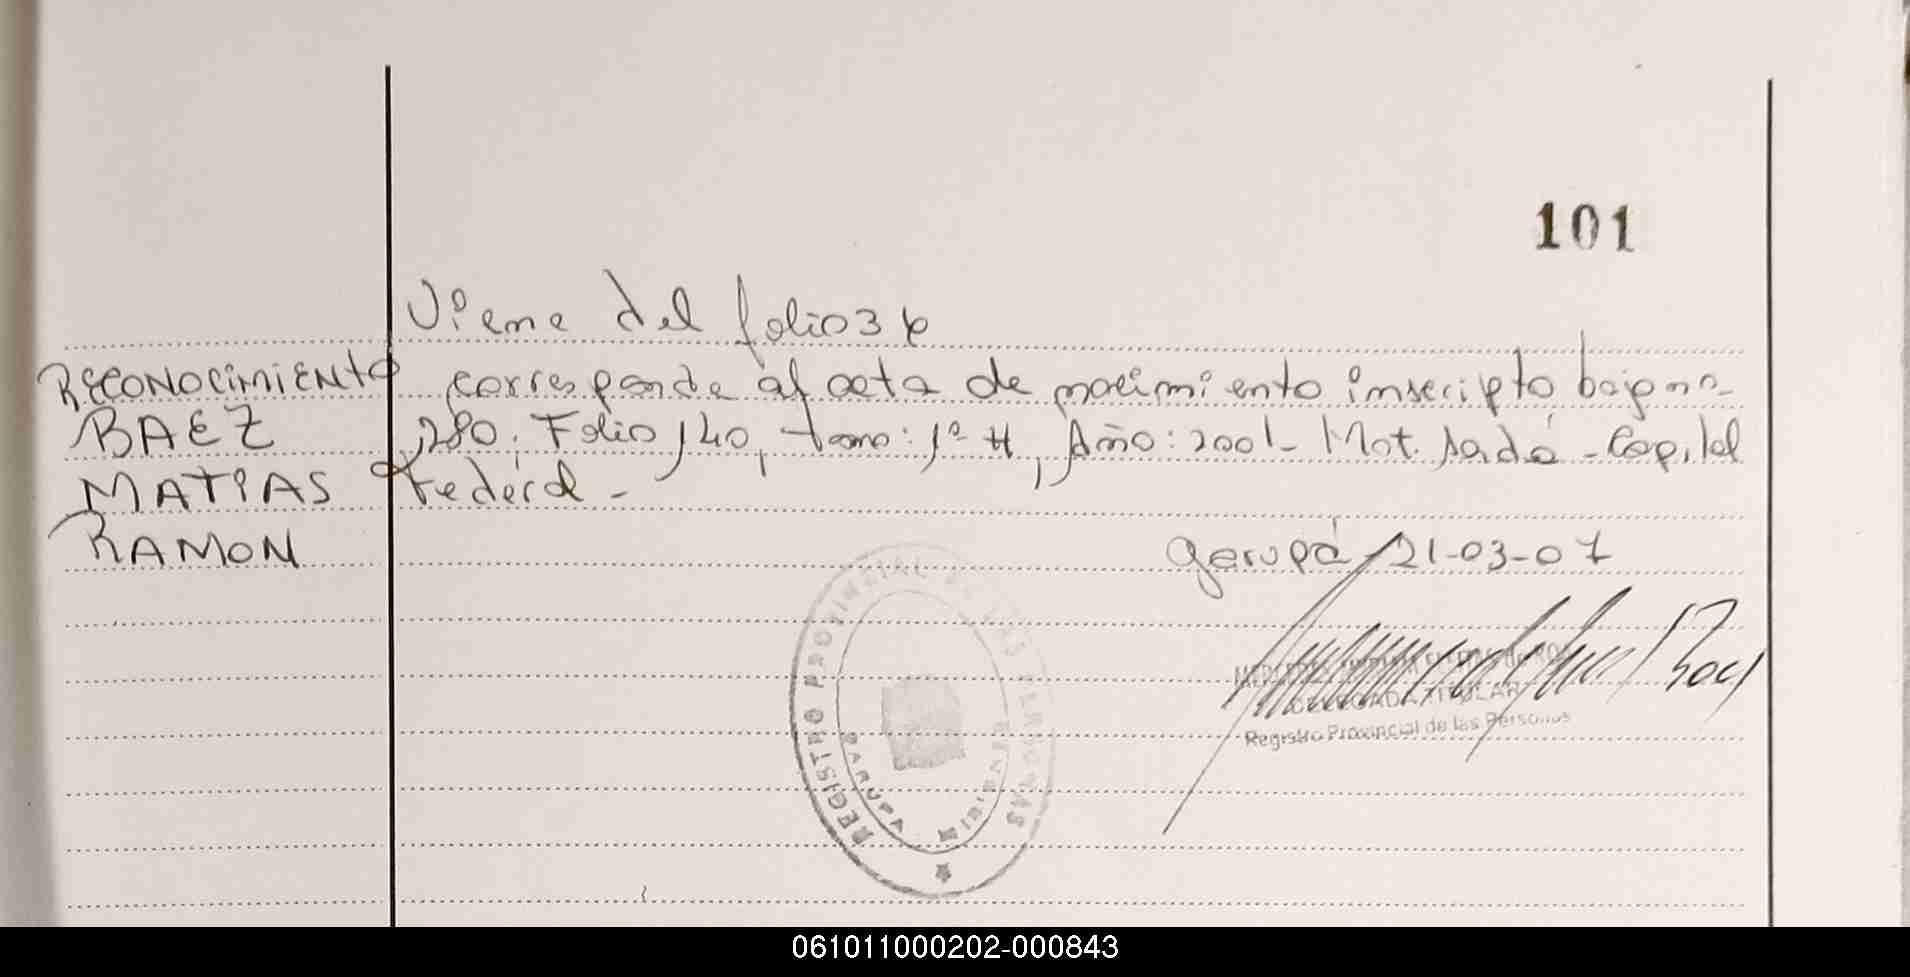 101
Viene del folio 36
RECONOCIMIENTO corresponde al acta de nacimiento inscripto bajo no-
BAEZ 280. Folio 140, tomo: 1º H, Año: 2001- Mat. Sardá - Capital
MATIAS Federal -
RAMON
Garupá 21-03-07
REGISTRO PROVINCIAL DE LAS PERSONAS
GARUPA
DELEGADA TITULAR
Registro Provincial de las Personas
061011000202-000843